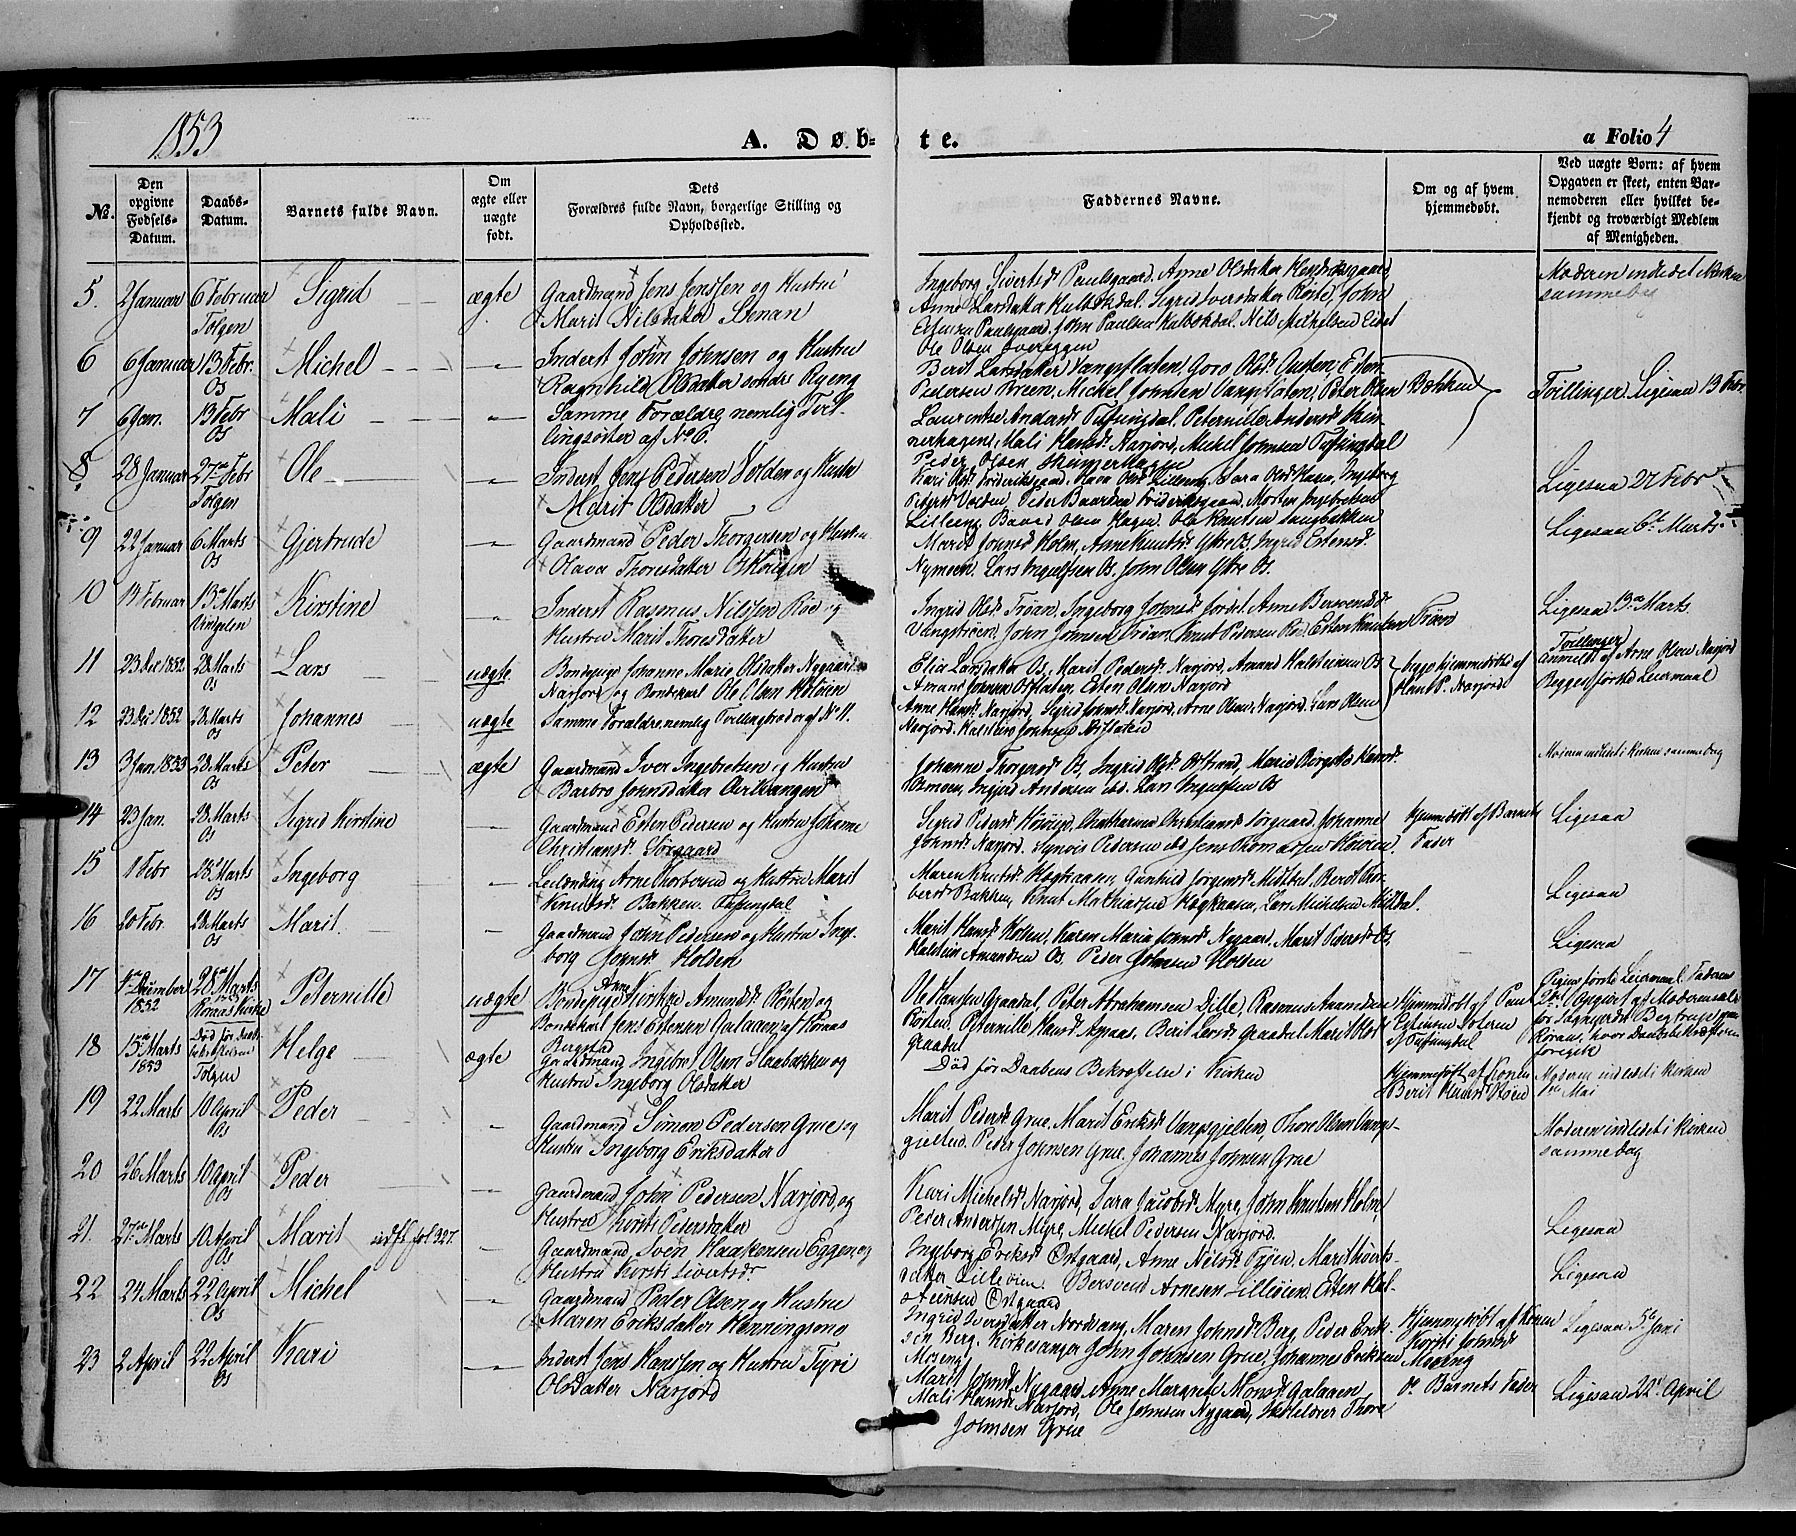 1853
A. Døb-
te.
a Folio 4
№.
Den
opgivne
Fødsels-
Datum.
Daabs-
Datum.
Barnets fulde Navn.
Om
ægte eller
uægte
født.
Dets
Forældres fulde Navn, borgerlige Stilling og
Opholdssted.
Faddernes Navne.
Om og af hvem
hjemmedøbt.
Ved uægte Børn: af hvem
Opgaven er skeet, enten Bar-
nemoderen eller hvilket be-
kjendt og troværdigt Medlem
af Menigheden.
5. 2 Januar 6 Februar Tolgen
Sigrid
ægte
Gaardmand Jens Jenssen og Hustru
Marit Nilsdatter
Ingeborg Sivertsd. Paulsgaard, Anne Olsdatter
Anne Larsdatter Sigrid Iversdatter John
Paulsgaard, John Paulsen Nils Michelsen
Ole Olsen
Moderen indledet i Kirken
samme dag
6 6 Januar 13 Febr. Os
Michel
Inderst John Johnsen og Hustru
Ragnhild Olsdatter søndre Ryeng
Berit Larsdatter Vangsflaten, Goro Olsd. Austen, Esten
Pedersen Michel Johnsen Vangsflaten, Peter Olsen Bækken
Tvillinger Ligesaa 13 Febr.
7 6 Jan. 13 Febr Os
Mali
Samme Forældre, nemlig Tvil-
lingsøster af No 6.
Andersd. Tufsingdal, Peternille Andersd. Skin-
nerhagen, Mali Hansd. Narjord, Michel Johnsen Tufsingdal
Peder Olsen Skinnerhagen
8 28 Januar 27de Febr Tolgen
Ole
Inderst Jens Pedersen Volden og Hustru
Marit Olsdatter
Kari Olsd. Frideriksgaard, Ingeborg
Pedersd. Volden, Peder Baardsen Frideriksgaard, Morten Ingebretsen
Lilleeng, Baard Olsen Hagen, Ole Knutsen
Ligesaa 27 Febr
9 22 Januar 6 Marts Os
Gjertrude
Gaardmand Peder Thorgersen og Hustru
Olava Thoresdatter
Marit Johnsd. Holm, Anne Knutsd. Ytre Os, Ingrid Estensd.
Nymoen, Lars Ingulfsen Os, John Olsen Ytre Os.
Ligesaa 6te Marts
10 19 Februar 13de Marts Vingelen
Kirstine
Inderst Rasmus Nilssen Røe og
Hustru Marit Thoresdatter
Ingrid Olsd. Trøan, Ingeborg Johnsd. Jordet, Anne Bersvendsd.
Vangstrøen, John Johnsen Trøan, Knut Pedersen Røe, Esten Knutsen Trøen
Ligesaa 13de Marts
11 23 Dec 1852 28 Marts Os
Lars
uægte
Bondepige Johanne Marie Olsdatter Nygaard
Narjord og Bondekarl Ole Olsen Holøien
Elia Larsdatter Os, Marit Pedersd. Narjord, Amund Halsteinsen Os
Amund Johnsen Osflaten, Esten Olsen Narjord
begge hjemmedøbte af
Hans P. Narjord
Tvillinger
anmeldt af Arne Olsen Narjord
Begges første Leiermaal
12 23 Dec 1852 28 Marts Os
Johannes
uægte
Samme Forældre, nemlig Tvillingbroder af N 11.
Anne Hansd. Narjord, Sigrid Johnsd. Narjord, Arne Olsen Narjord, Lars Olsen
Narjord, Halstein Johnsen
13 3 Jan 1853 28 Marts Os
Peter
ægte
Gaardmand Iver Ingebretsen og Hustru
Barbro Johnsdatter
Johanne Thorgersd. Os, Ingrid Olsd. Marie Birgitte Hansd.
Osmoen, Ingvar Andersen ibd. Lars Ingulfsen Os
Moderen indledet i Kirken samme dag
14 23 Jan. 28 Marts Os
Sigrid Kirstine
Gaardmand Esten Pedersen og Hustru Johanne
Christiansd. Sorgaard
Sigrid Pedersd. Catharina Christiansd. Sorgaard, Johanne
Johnsd. Narjord, Synvis Pedersen ibd. Jens Thomassen Holøien,
hjemmedøbt af Barnets
Fader
Ligesaa
15 1 Febr 28d Marts Os
Ingeborg
Leilænding Arne Thorbersen og Hustru Marit
Knutsd. Bakken, Tufsingdal
Maren Knutsd. Gunhild Jørgensd. Midtdal, Berit Thor-
bersd. Bakken, Knut Mathiassen Lars Michelsen Midtdal.
Ligesaa
16 20 Febr. 28 Marts Os
Marit.
Gaardmand John Pedersen og Hustru Inge-
borg Johnsd. Holden
Marit Hansd. Holden, Karen Maria Johnsd. Nygaard, Marit Pedersd. Os,
Halstein Amundsen Os, Peder Johnsen Holden
Ligesaa
17 4de December 1852 28de Marts 1853 Røraas Kirke
Peternille
uægte
Bondepige Anne Kirstine Amundsd. Røsten og
Bondekarl Jens Estensen Galaaen af Røraas
Ole Hansen Graadal, Peter Abrahamsen Dille, Rasmus Aamundsen
Røsten, Peternille Hansd. Amaas, Berit Larsd. Graadal, Marit Olsd.
Graadal
Hjemmedøbt af Paul
Estensen
af Tufsingdal
Pigens første Leiermaal Faderens
2det Opgivet af Moderen
for Sognepræst
Røraas, hvor Daabsbekræftelsen
foregik
18 15de Marts 1853 Død før Daabs-
bekræftelsen Tolgen
Helge
ægte
Bergstad
Gaardmand Ingebret Olsen Slaabakken og
Hustru Ingeborg Olsdatter
Død før Daabens Bekræftelse i Kirken
Hjemmedøbt af Konen
Berit Hansd.
Moderen indledet i Kirken
1ste Mai
19 22 Marts 10 April Os
Peder
Gaardmand Simon Pedersen Grue og
Hustru Ingeborg Eriksdatter
Marit Pedersd. Grue, Marit Eriksd. Vangsgjelten, Thore Olsen Vangs-
gjelten, Peder Johnsen Grue, Johannes Johnsen Grue
Moderen indledet i Kirken
samme dag
20 26 Marts 10 April Os
Peder
Gaardmand John Pedersen Narjord, og
Hustru Kirsti Pedersdatter
Kari Michelsd. Narjord, Sara Jacobsd. Myre, John Knutsen Holm,
Peder Anderssen Myre, Michel Pedersen Narjord.
Ligesaa
21. 27de Marts 10 April Os
Marit udft. fol 327.
Gaardmand Sven Haakensen Eggen og
Hustru Kirsti Sivertsdr
Ingeborg Eriksd. Østgaard, Anne Nilsd. Marit
datter Lilleøien, Bersvend Arnesen Lilleøien, Esten Hal-
steinsen Østgaard
Ligesaa
22 24 Marts 22 April Os
Michel
Gaardmand Peder Olsen og Hustru
Maren Eriksdatter Henningsmo
Ingrid Bersdatter Nordvang, Maren Johnsd. Berg, Peder Erik-
sen Berg, Kirkesanger John Johnsen Grue, Johannes Eriksen
Moseng
Hjemmedøbt af Konen
Kirsti Johnsd.
Moseng
Ligesaa 5te Juni
23 2 April 22 April Os
Kari
Inderst Jens Hanssen og Hustru Tyri
Olsdatter Narjord
Marit Johnsd. Nygaard, Anne Margrete Monsd. Galaaen
Mali Hansd. Narjord, Ole Johnsen Nygaard, Skoleholder Thore
Johnsen Grue
Do Barnets Fader
Ligesaa 22d April